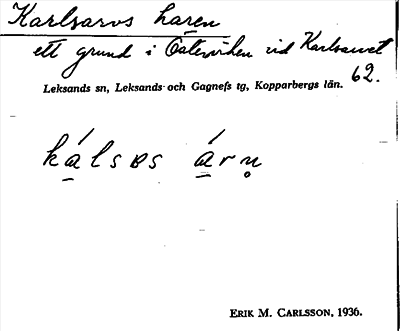 Karlsarvs haren
ett grund i Österviken vid Karlsarvet
62.
Leksands sn, Leksands- och Gagnefs tg, Kopparbergs län.
ká̱lsɐs á̱rn̥
ERIK M. CARLSSON, 1936.